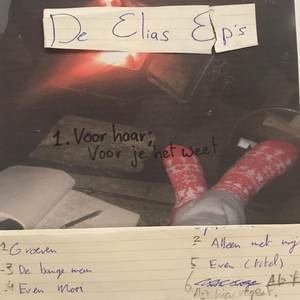 De Elias Ep's
1. Voor haar;
Voor je het weet
2 Groeven
.3 De bange man
.4 Even Mooi
2 Alleen met mij
5 Even (titel)
6